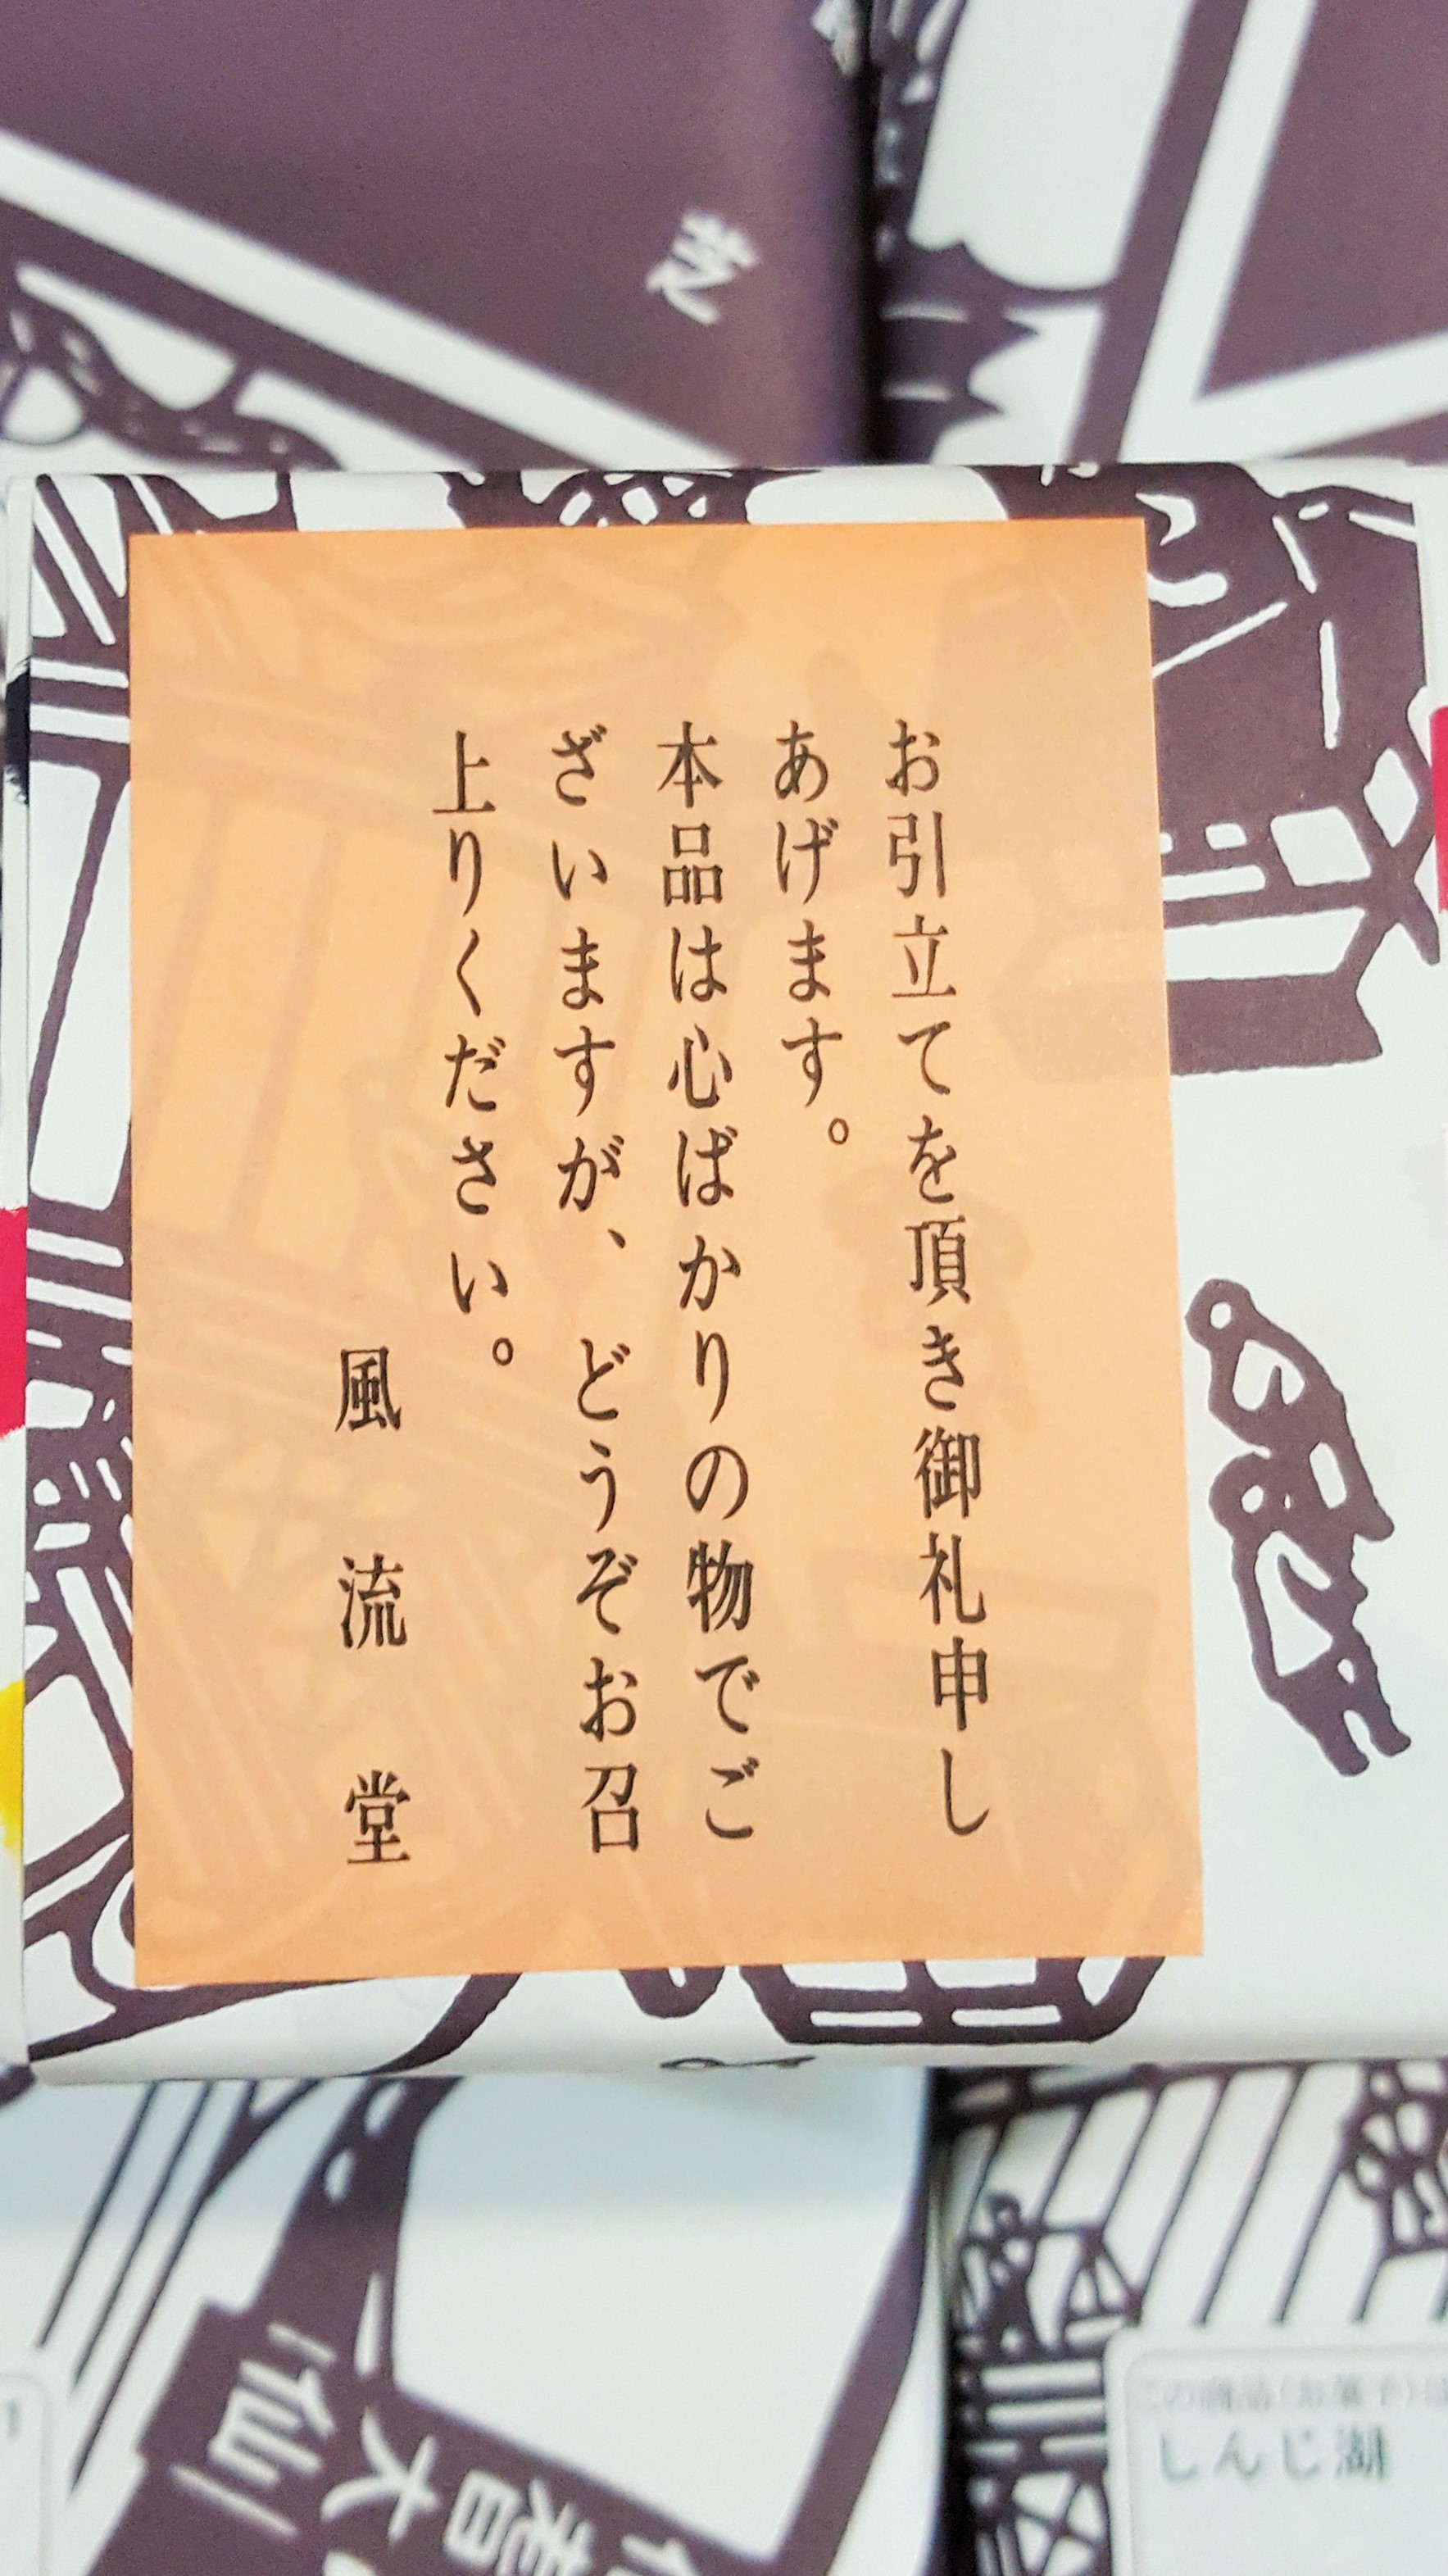 お引立てを頂き御礼申し
あげます。
本品は心ばかりの物でご
ざいますが、どうぞお召
上りください。
風流堂
芝
しんじ湖